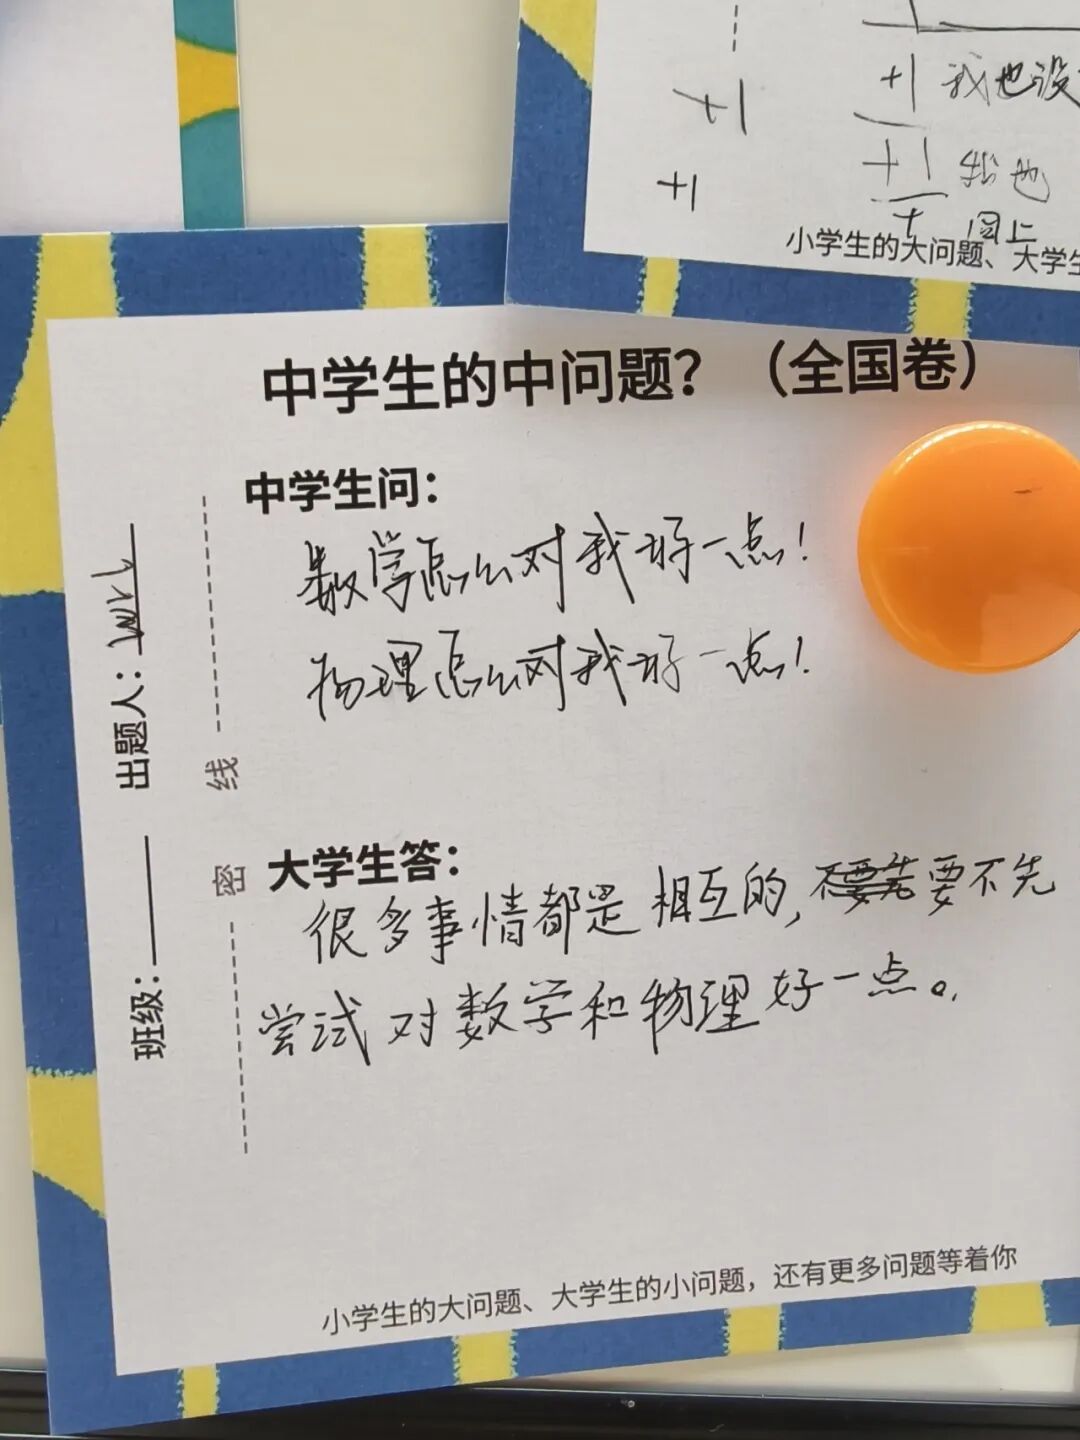 +1
+1
+1 我也没
+1 我也
+ 同上
小学生的大问题、大学生
中学生的中问题？（全国卷）
中学生问：
数学怎么对我好一点！
物理怎么对我好一点！
大学生答：
很多事情都是相互的，不要先要不先
尝试对数学和物理好一点。
班级： 出题人：
密 线
小学生的大问题、大学生的小问题，还有更多问题等着你